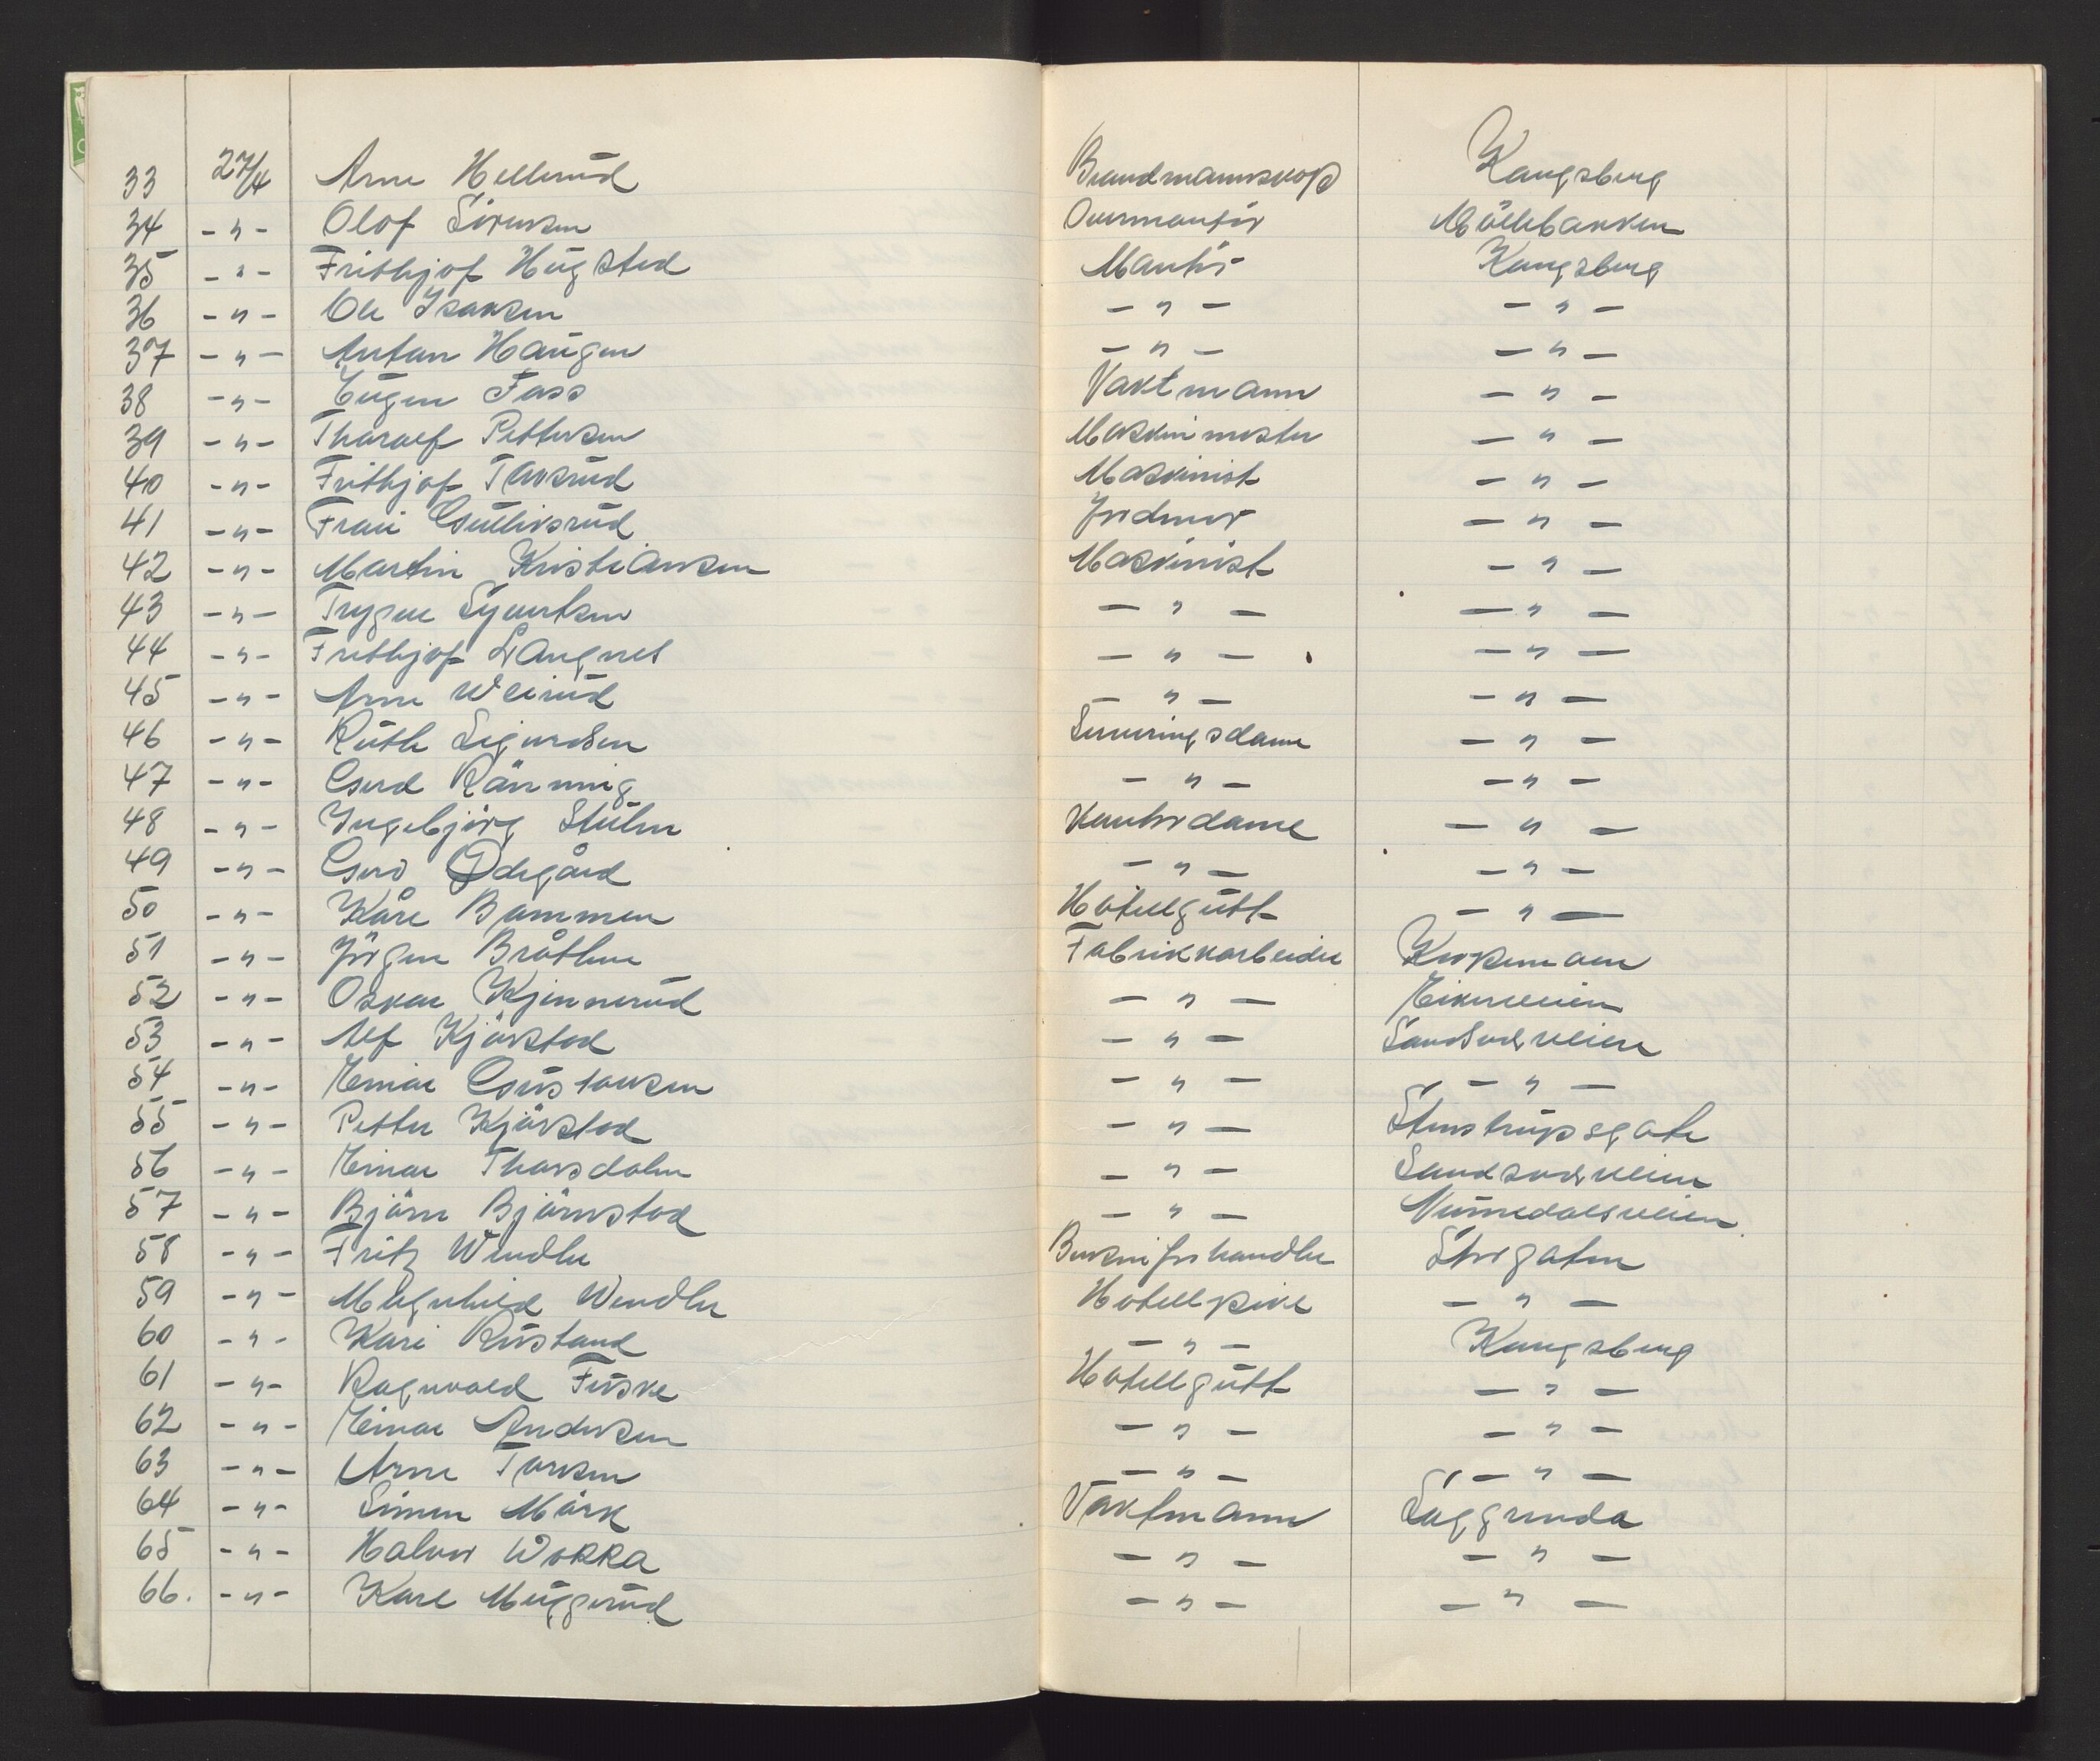 33 27/4 Arne Hellerud Brandmannskap Kongsberg
34 -"- Olof Sörensen Overmontör Möllebakken
35 -"- Frithjof Hugsted Montör Kongsberg
36 -"- Ole Isaksen -"- -"-
37 -"- Anton Haugen -"- -"-
38 -"- Eugen Foss Vaktmann -"-
39 -"- Thoralf Pettersen Maskinmester -"-
40 -"- Frithjof Taksrud Maskinist -"-
41 -"- Frau Gulliksrud Jordmor -"-
42 -"- Martin Kristiansen Maskinist -"-
43 -"- Trygve Syvertsen -"- -"-
44 -"- Frithjof Langnes -"- -"-
45 -"- Arne Weirud -"- -"-
46 -"- Ruth Sigurdsen Serveringsdame -"-
47 -"- Gerd Rönning -"- -"-
48 -"- Ingebjörg Stulen Kontordame -"-
49 -"- Gerd Ødegård -"- -"-
50 -"- Kåre Bammen Hotellgutt -"-
51 -"- Jörgen Bråthen Fabrikkarbeider
52 -"- Oskar Kjennerud -"- Eikerveien
53 -"- Alf Kjörstad -"- Sandsverveien
54 -"- Einar Gustavsen -"- -"-
55 -"- Petter Kjörstad -"- Stenstrupsgate
56 -"- Einar Thorsdalen -"- Sandsverveien
57 -"- Björn Björnstad -"- Numedalsveien
58 -"- Fritz Wendler Bensinforhandler Storgaten
59 -"- Magnhild Wendler Hotellpike -"-
60 -"- Kari Rustand -"- Kongsberg
61 -"- Ragnvald Fuske Hotellgutt -"-
62 -"- Einar Andersen -"- -"-
63 -"- Arne Torsen -"- -"-
64 -"- Simen Mörk Vaktmann Saggrenda
65 -"- Halvor Wokka -"- -"-
66. -"- Karl Muggerud -"- -"-